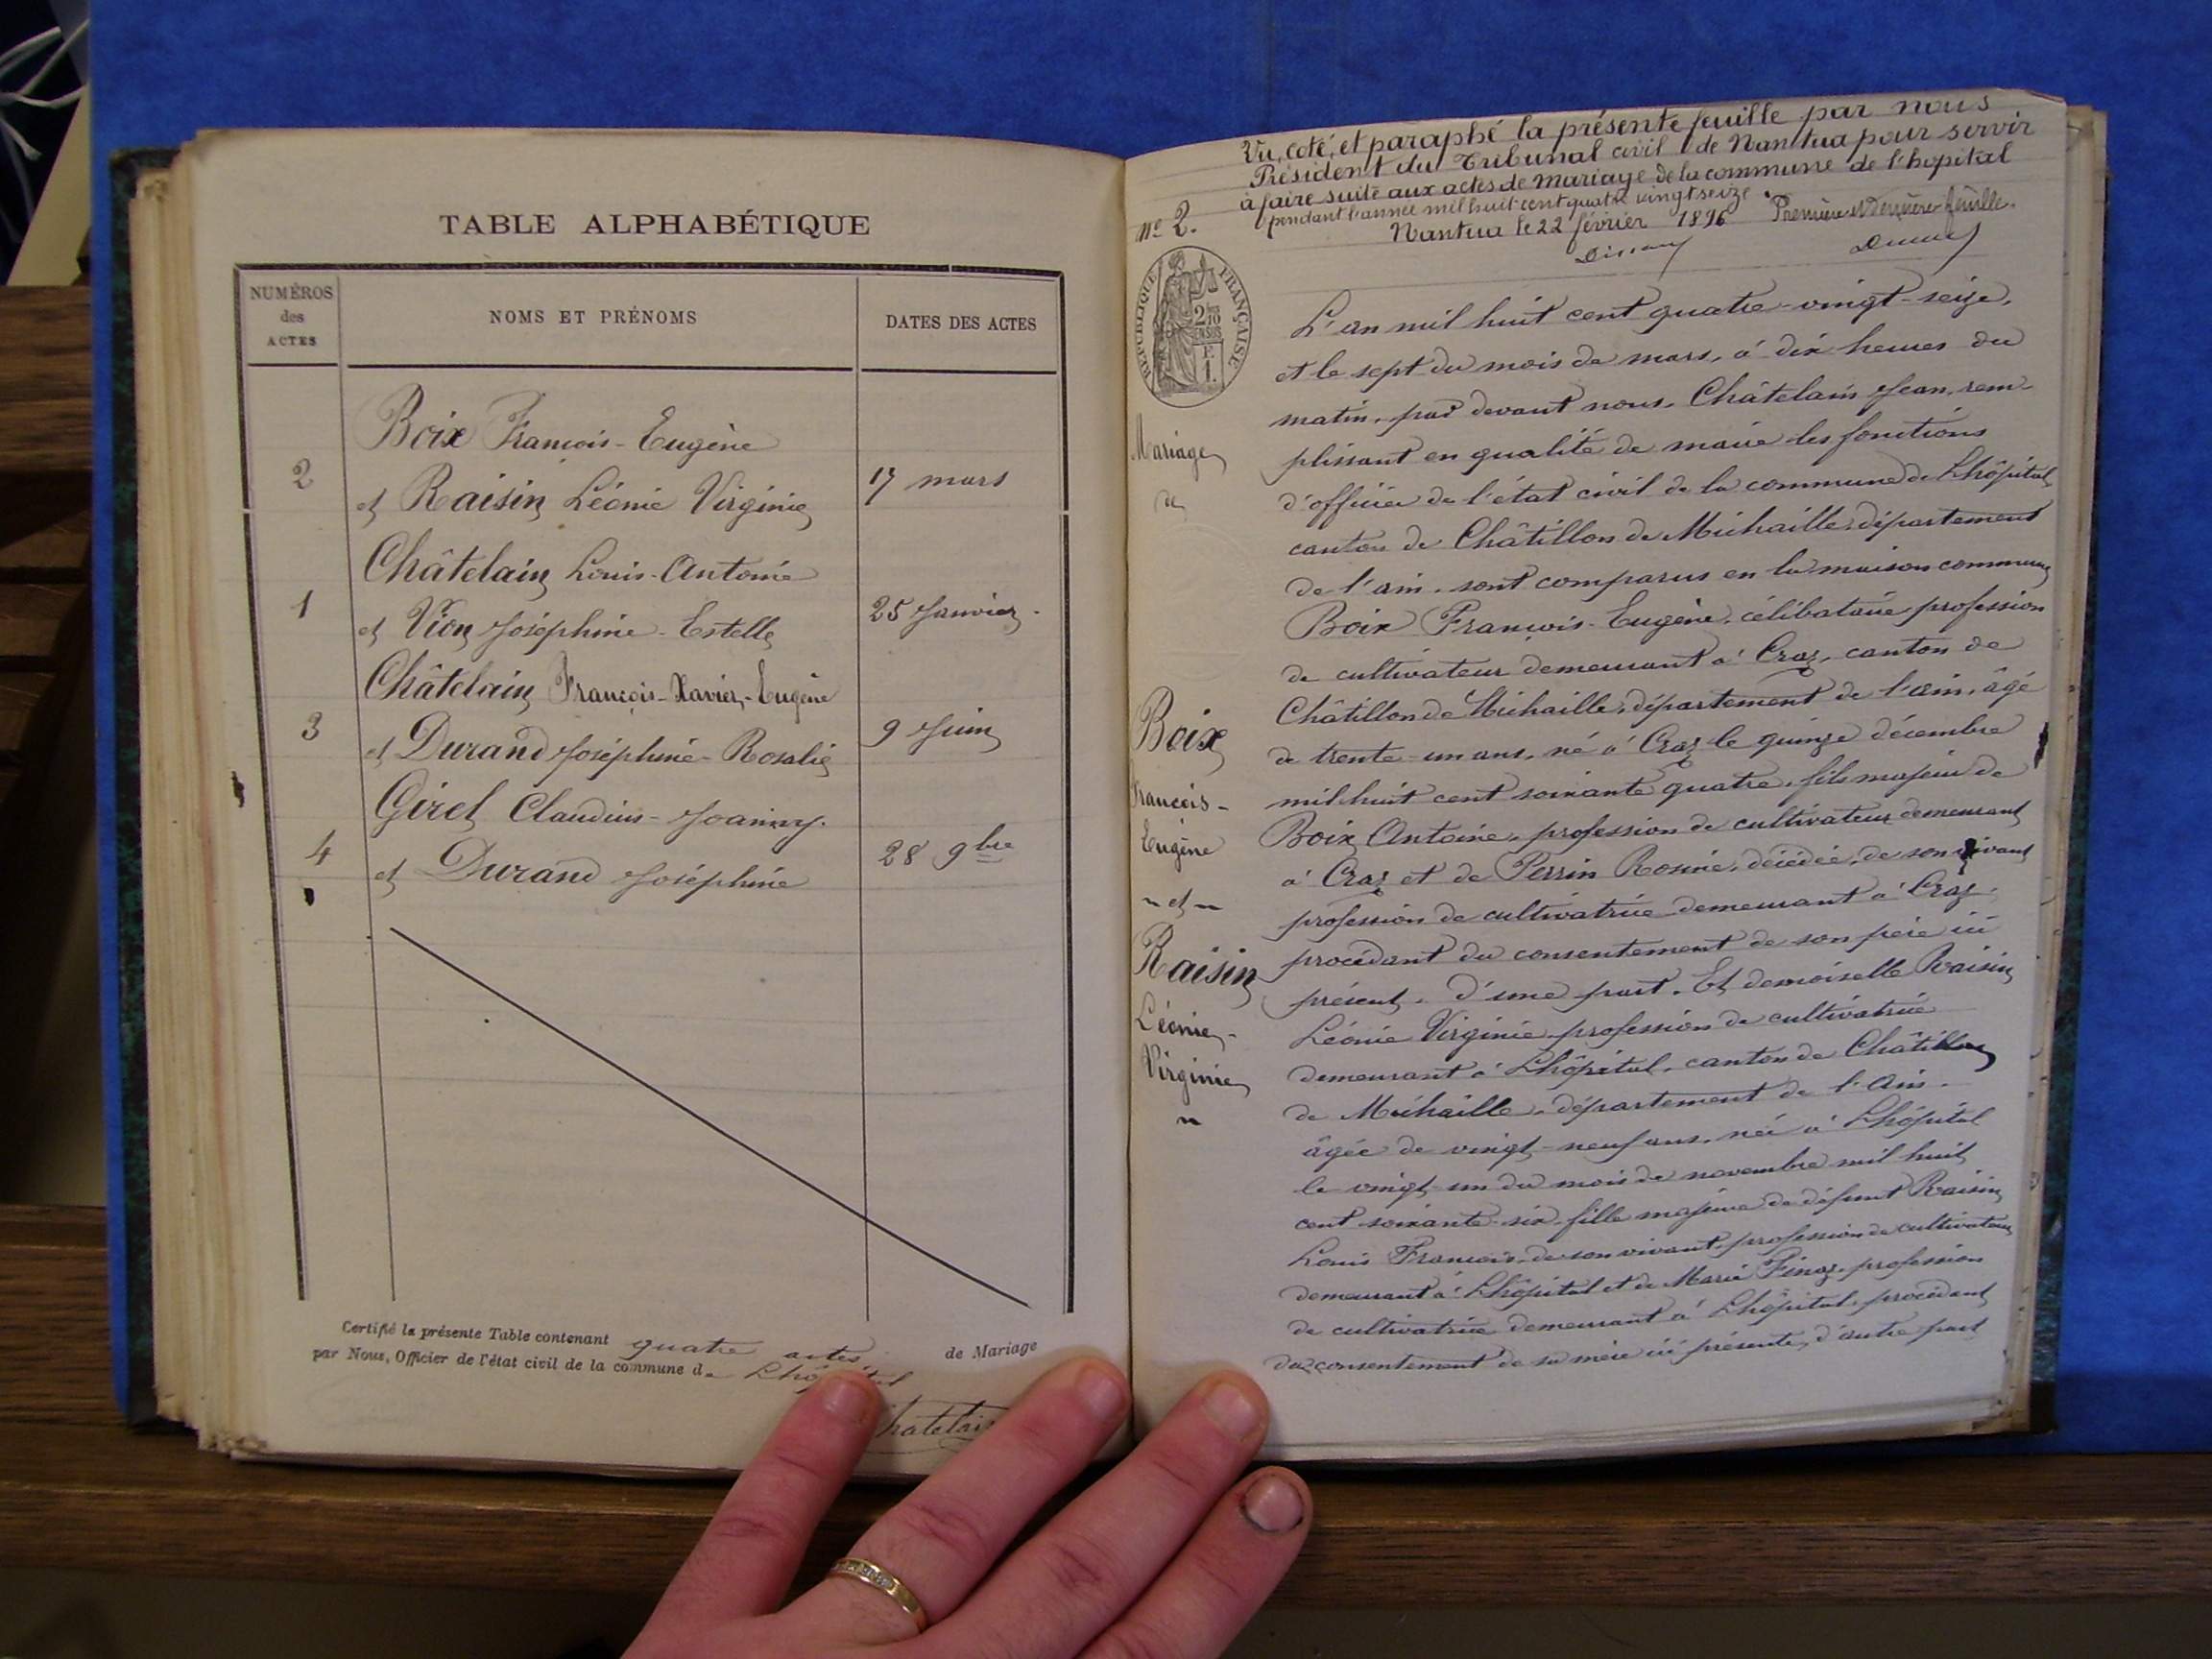 TABLE ALPHABÉTIQUE
NUMÉROS
des
ACTES
NOMS ET PRÉNOMS
DATES DES ACTES
Boix François-Eugène
2 et Raisin Léonie Virginie 17 mars
Châtelain Louis-Antonie
1 et Vion Joséphine-Estelle 25 Janvier.
Châtelain François-Xavier-Eugène
3 et Durand Joséphine-Rosalie 9 Juin
Girel Claudius-Joanny.
4 et Durand Joséphine 28 9bre
Certifié la présente Table contenant quatre actes de Mariage
par Nous, Officier de l'état civil de la commune de Lhôpital
Chatelain
Vu, coté, et paraphé la présente feuille par nous
Président du Tribunal civil de Nantua pour servir
à faire suite aux actes de mariage de la commune de l'hopital
pendant l'année mil huit cent quatre vingt seize
Nantua le 22 février 1896 Première et dernière feuille.
n° 2.
RÉPUBLIQUE FRANÇAISE
2/10
EN SUS
F.
1.
Mariage
de
Boix
François-
Eugène
~ et ~
Raisin
Léonie-
Virginie
~
L'an mil huit cent quatre-vingt-seize,
et le sept du mois de mars, à dix heures du
matin, par devant nous, Châtelain Jean, rem-
plissant en qualité de maire les fonctions
d'officier de l'état civil de la commune de Lhôpital
canton de Châtillon de Michaille, département
de l'ain, sont comparus en la maison commune
Boix François-Eugène, célibataire, profession
de cultivateur demeurant à Craz, canton de
Châtillon de Michaille, département de l'ain, âgé
de trente-un ans, né à Craz le quinze décembre
mil huit cent soixante quatre, fils majeur de
Boix Antoine, profession de cultivateur demeurant
à Craz et de Perrin Rosine, décédée, de son vivant
profession de cultivatrice demeurant à Craz,
procédant du consentement de son père ici
présent, d'une part. Et demoiselle Raisin
Léonie Virginie profession de cultivatrice
demeurant à Lhôpital, canton de Châtillon
de Michaille, département de l'Ain.
âgée de vingt-neuf ans, née à Lhôpital
le vingt-un du mois de novembre mil huit
cent soixante-six fille majeure de défunt Raisin
Louis François, de son vivant, profession de cultivateur
demeurant à Lhôpital et de Marie Pinaz, profession
de cultivatrice demeurant à Lhôpital, procédant
du consentement de sa mère ici présente, d'autre part